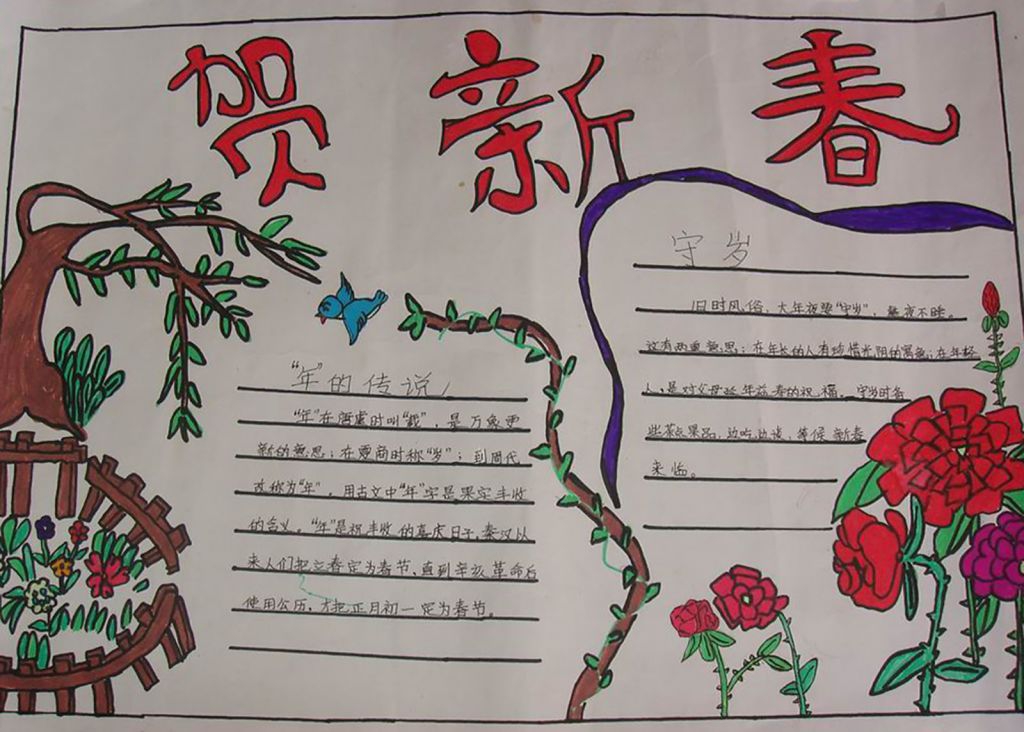 贺新春
"年"的传说
"年"在唐虞时叫"载",是万象更
新的意思;在夏商时称"岁";到周代
改称为"年",用古文中"年"字是果实丰收
的含义。"年"是祝丰收的喜庆日子,秦汉以
来人们把立春定为春节,直到辛亥革命后
使用公历,才把正月初一定为春节。
守岁
旧时风俗,大年夜要"守岁",整夜不睡。
这有两重意思;在年长的人有珍惜光阴的寓意;在年轻
人,是对父母延年益寿的祝福。守岁时备
些茶点果品,边吃边谈,等候新春
来临。